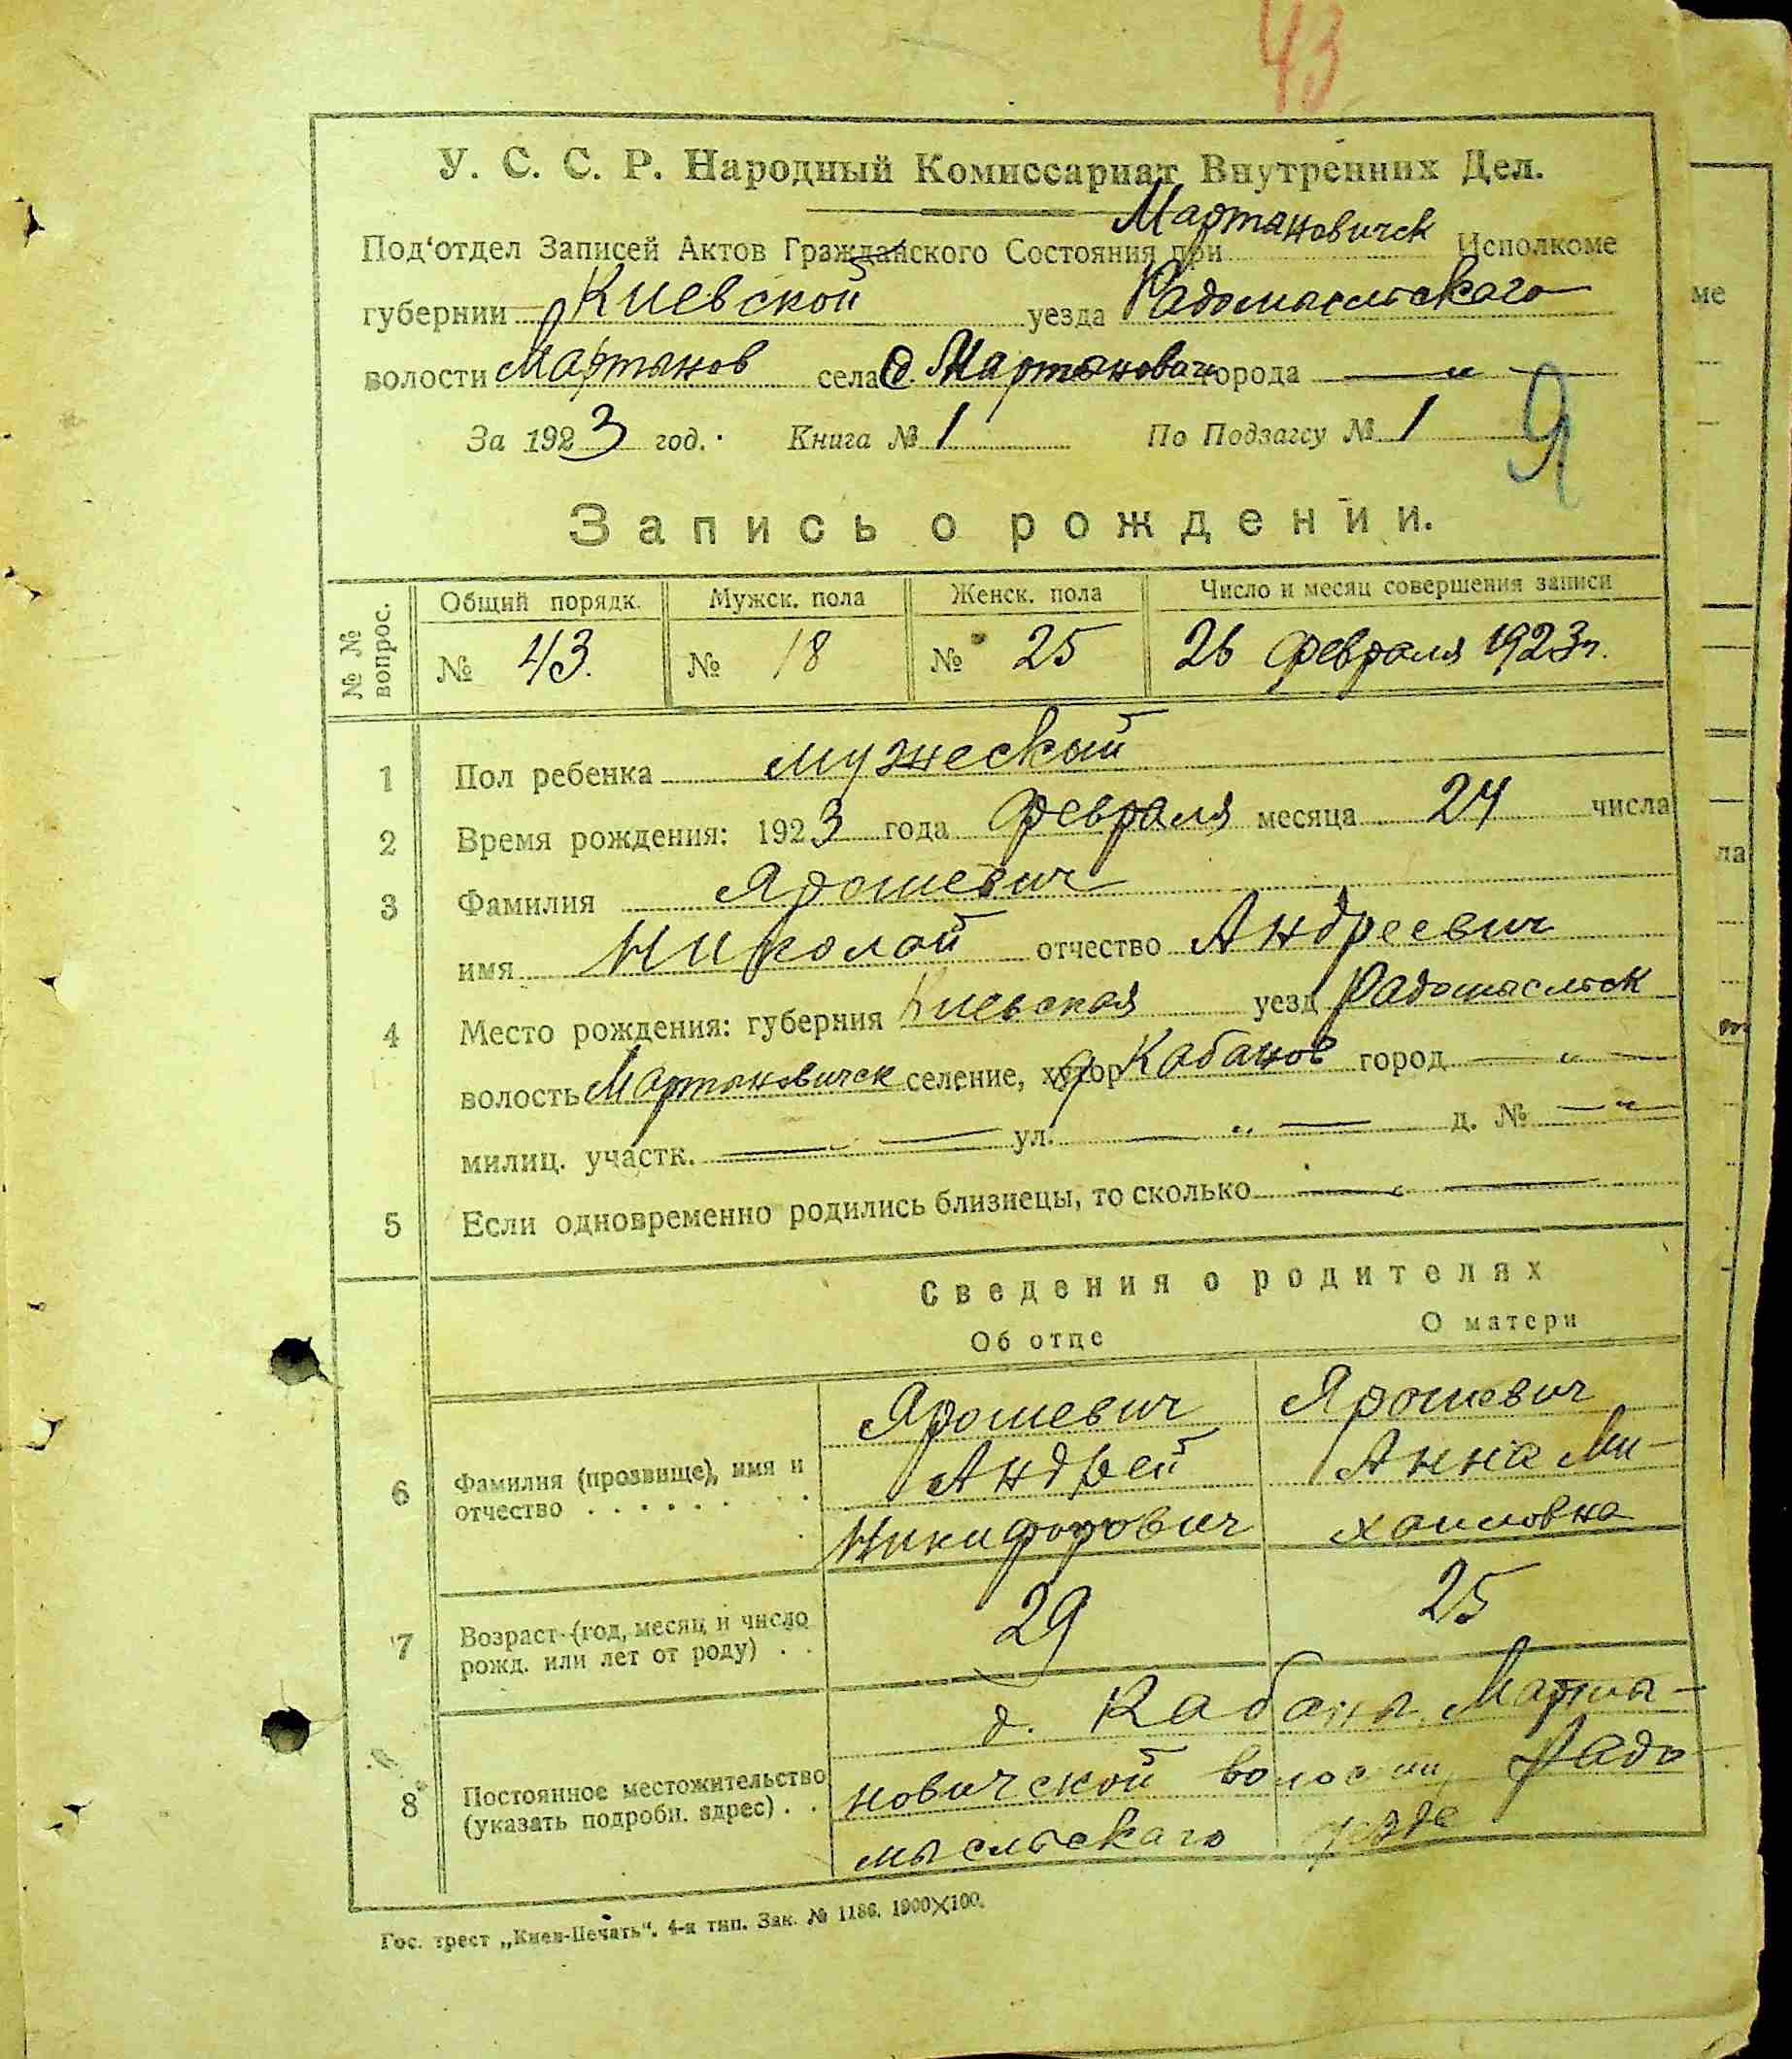 43
У. С. С. Р. Народный Комиссариат Внутренних Дел.
Под'отдел Записей Актов Гражданского Состояния при Мартановичск Исполкоме
губернии Киевской уезда Радомысльскаго
волости Мартынов села с. Мартынович города — " —
За 1923 год. Книга № 1 По Подзагсу № 1
Я
Запись о рождении.
№ № вопрос. Общий порядк. Мужск. пола Женск. пола Число и месяц совершения записи
№ 43. № 18 № 25 26 февраля 1923 г.
1 Пол ребенка мужеский
2 Время рождения: 1923 года февраля месяца 24 числа
3 Фамилия Ярошевич
имя Николай отчество Андреевич
4 Место рождения: губерния Киевская уезд Радомысльск
волость Мартановичск селение, хутор д Кабанов город — " —
милиц. участк. — " — ул. — " — д. № — " —
5 Если одновременно родились близнецы, то сколько — " —
Сведения о родителях
Об отце О матери
6 Фамилия (прозвище), имя и отчество . . . . . . . . .
Ярошевич Ярошевич
Андрей Анна Ми-
Никифорович хаиловна
7 Возраст (год, месяц и число рожд. или лет от роду) . . 29 25
8 Постоянное местожительство (указать подробн. адрес) . .
д. Кабаны Марты-
новичской волости Радо-
мысльскаго уезда
Гос. трест „Киев-Печать". 4-я тип. Зак. № 1186. 1900×100.
ме
ла